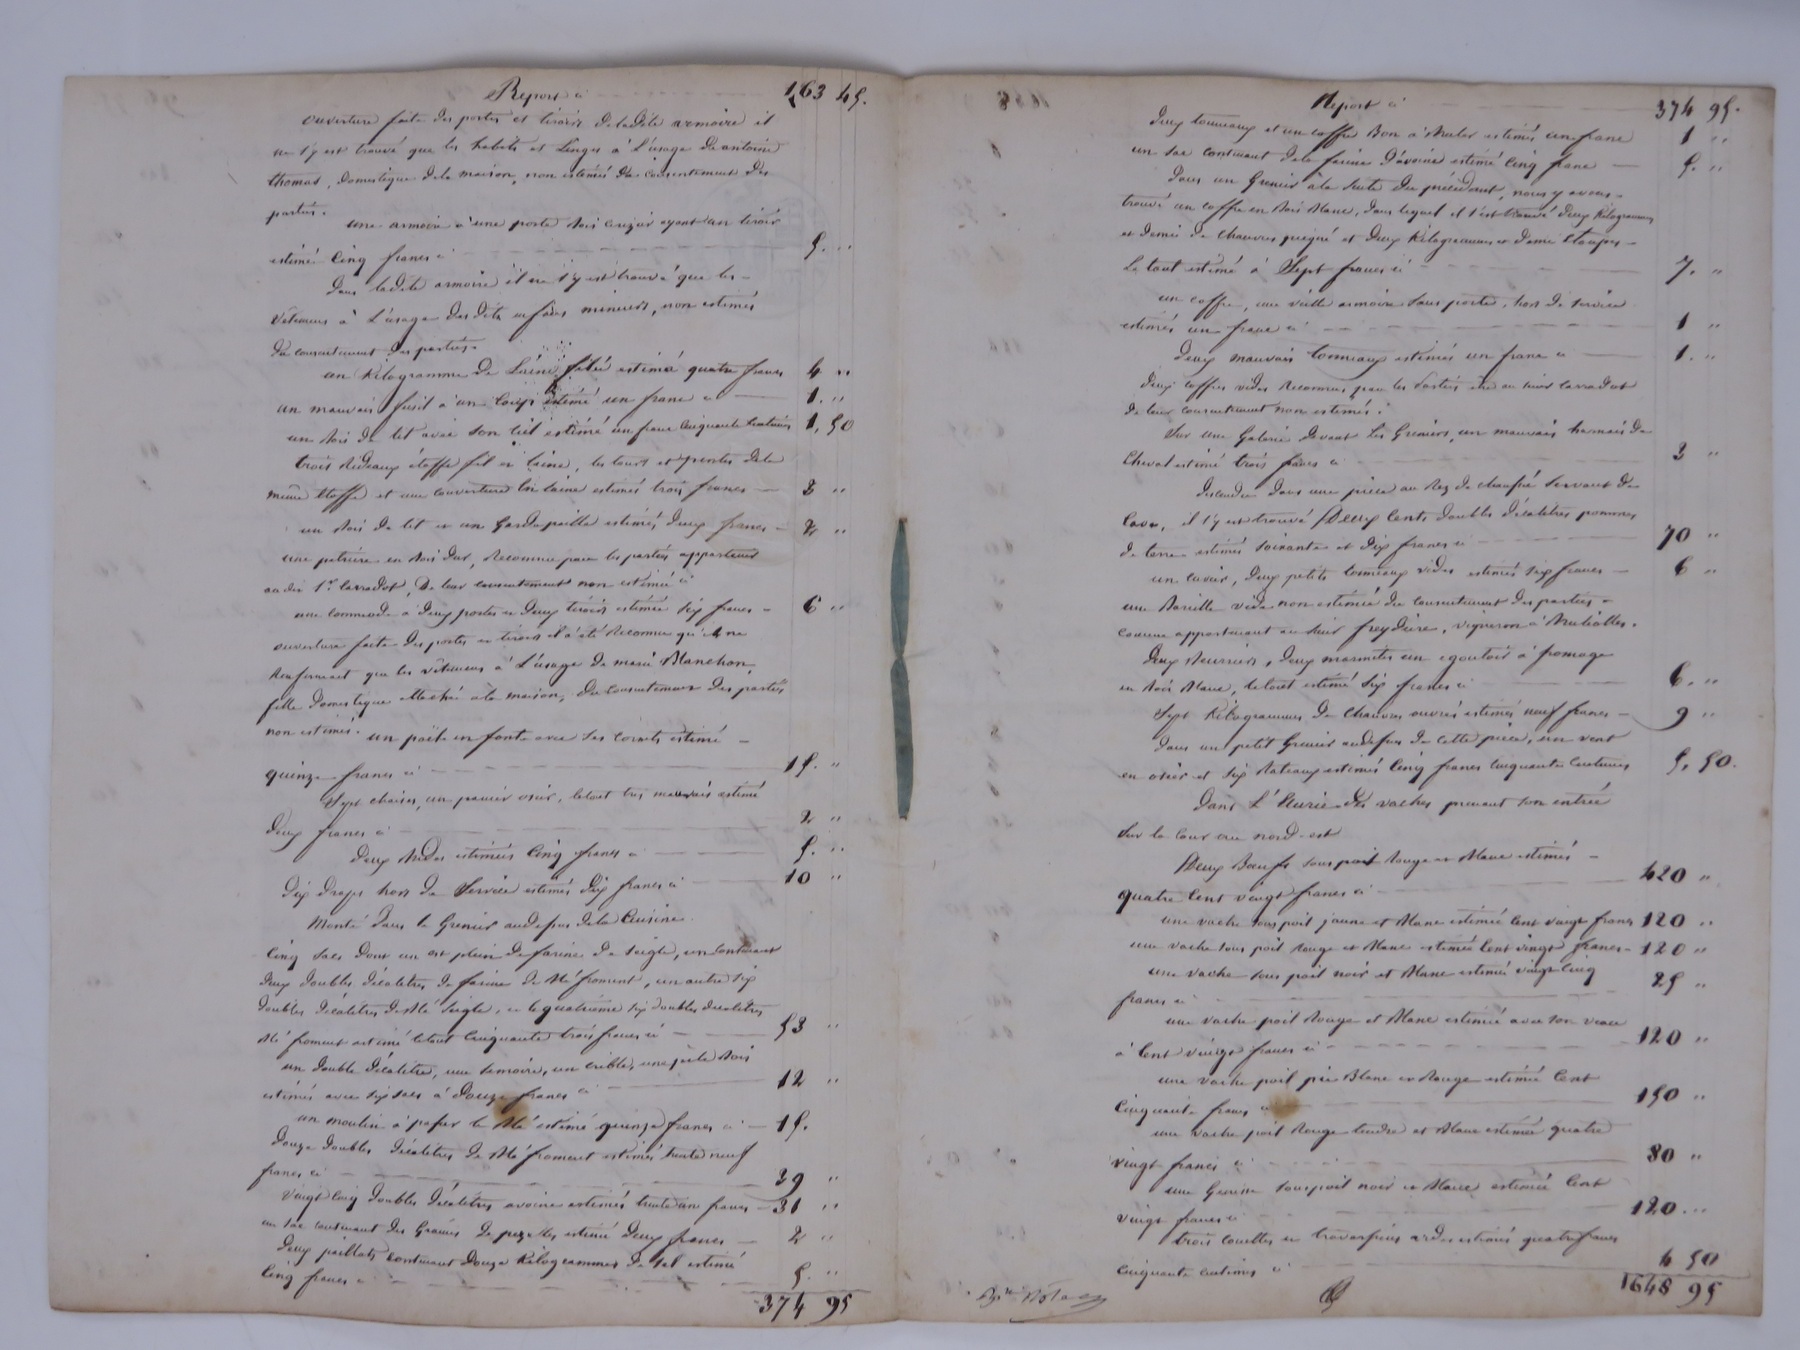 Report à 163 45.
ouverture faite des portes et tiroirs de ladite armoire il
ne s'y est trouvé que les habits et linges à l'usage de antoine
thomas, domestique de la maison, non estimés du consentement des
parties.
une armoire à une porte bois cerizier ayant un tiroir
estimé cinq francs à 5. "
Dans ladite armoire il ne s'y est trouvé que les
vêtemens à l'usage des dits enfans mineurs, non estimés
du consentement des parties.
un kilogramme de laine filée estimé quatre francs 4 "
un mauvais fusil à un coup estimé un franc à 1. "
un bois de lit avec son ciel estimé un franc cinquante centimes 1, 50
trois rideaux étoffe fil et laine, les tours et pentes de la
même étoffe et une couverture en laine estimés trois francs 3 "
un bois de lit et un gardepaille estimés deux francs 2 "
une pétrière en bois dur, reconnue par les parties appartenir
au dit Sr. Carradot, de leur consentement non estimée
une commode à deux portes et deux tiroirs estimée six francs 6 "
ouverture faite des portes et tiroirs il a été reconnu qu'il ne
renfermait que les vêtemens à l'usage de marie Blanchon,
fille domestique attachée à la maison, du consentement des parties
non estimés.
un poêle en fonte avec ses cornets estimé
quinze francs à 15. "
Sept chaises, un panier osier, le tout très mauvais estimé
deux francs à 2 "
deux estimées cinq francs à 5. "
Dix draps hors de service estimés dix francs à 10 "
Monté dans le Grenier audessus de la Cuisine.
Cinq sacs dont un est plein de farine de seigle, un contenant
deux doubles décalitres de farine de blé froment, un autre six
doubles décalitres de blé seigle, et le quatrième six doubles décalitres
blé froment estimé le tout cinquante trois francs à 53 "
un double décalitre, une, un crible, une pèle bois
estimés avec six sacs à douze francs à 12 "
un moulin à passer le blé estimé quinze francs à 15.
Douze doubles décalitres de blé froment estimés trente neuf
francs à 39 "
vingt cinq doubles décalitres avoine estimés trente un francs 31 "
un sac contenant des graines de pezettes estimé deux francs 2 "
Deux paillats contenant douze kilogrammes de sel estimé
cinq francs à 5. "
374 95
Report à 374 95.
Deux tonneaux et un coffre bon à bruler estimés un franc 1 "
un sac contenant de la farine d'avoine estimé cinq francs 5. "
Dans un Grenier à la suite du précédent, nous y avons
trouvé un coffre en bois blanc, dans lequel il s'est trouvé deux kilogrammes
et demie de chanvre peigné et deux kilogrammes et demie étoupes
le tout estimé à Sept francs à 7. "
un coffre, une vielle armoire sans porte, hors de service
estimés un franc à 1 "
deux mauvais tonneaux estimés un franc à 1. "
deux coffres vides reconnus par les parties être au sieur Carradot
de leur consentement non estimés.
Sur une Galerie devant les Greniers, un mauvais harnais de
cheval estimé trois francs à 3 "
descendu dans une pièce au rez de chaussée servant de
cave, il s'y est trouvé Deux cents doubles décalitres pommes
de terre estimés soixante et dix francs à 70 "
un cuvier, deux petits tonneaux vides estimés six francs 6 "
une barille vide non estimée du consentement des parties
comme appartenant au sieur freydière, vigneron à
deux beurriers, deux marmites un égoutoir à fromage
en bois blanc, le tout estimé six francs à 6. "
Sept kilogrammes de chanvre ouvrés estimés neuf francs 9 "
dans un petit Grenier audessus de cette pièce, un vent
en osier et six rateaux estimés cinq francs cinquante centimes 5, 50.
Dans l'Ecurie des vaches prenant son entrée
sur la cour au nord-est
Deux Bœufs sous poil rouge et blanc estimés
quatre cent vingt francs à 420 "
une vache sous poil jaune et blanc estimée cent vingt francs 120 "
une vache sous poil rouge et blanc estimée cent vingt francs 120 "
une vache sous poil noir et blanc estimée vingt cinq
francs à 25 "
une vache poil rouge et blanc estimée avec son veau
à cent vingt francs à 120 "
une vache poil pie blanc et rouge estimée cent
cinquante francs à 150 "
une vache poil rouge tendre et blanc estimée quatre
vingt francs à 80 "
une Genisse sous poil noir et blanc estimée cent
vingt francs à 120 "
trois couettes et traversiers estimés quatre francs
cinquante centimes à 4 50
1648 95